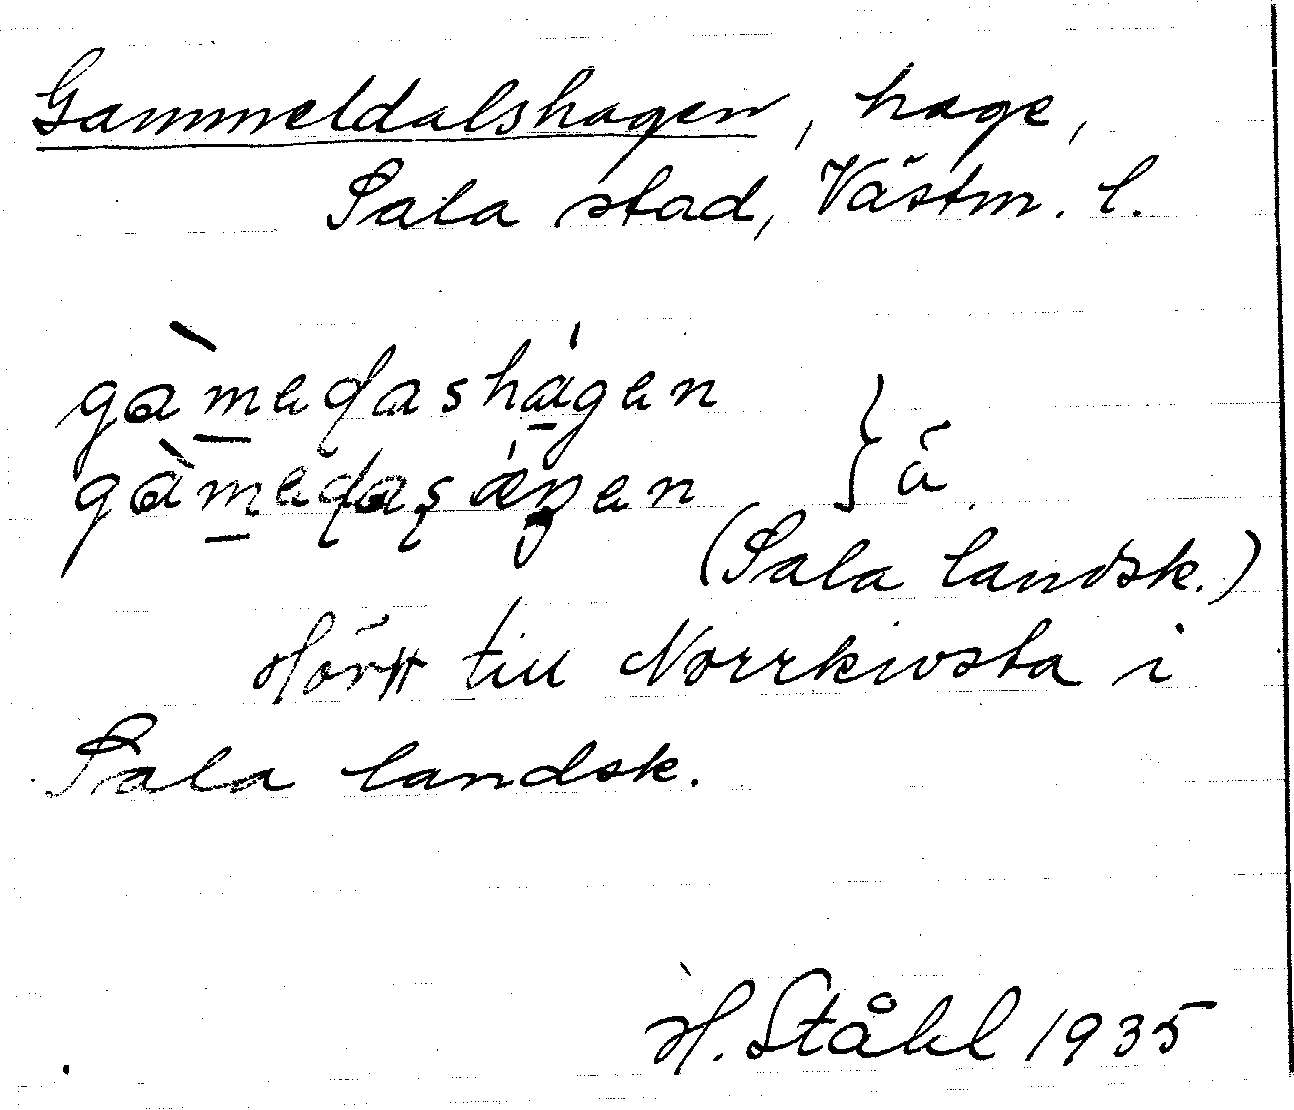 Gammeldalshagen, hage,
Sala stad, Västm. l.
gàmedashágen
gàmedasæŋen } å
(Sala landsk.)
Hört till Norrkivsta i
Sala landsk.
H. Ståhl 1935